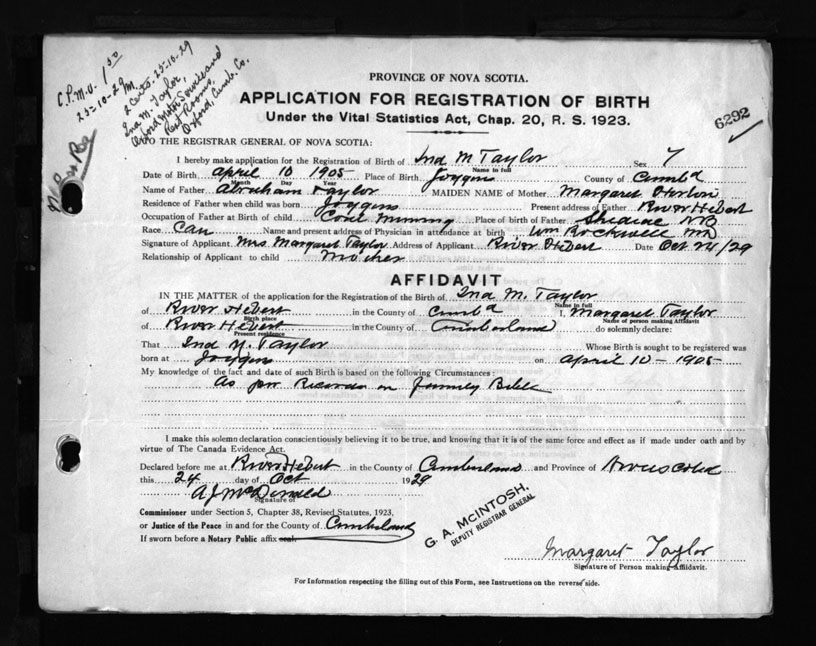 C.P.M.O. 1.50
25-10-29
2 Certs. 25-10-29
Ina M. Taylor,
Oxford Motor Service and
Rest Rooms,
Oxford, Cumb. Co.
PROVINCE OF NOVA SCOTIA.
APPLICATION FOR REGISTRATION OF BIRTH
Under the Vital Statistics Act, Chap. 20, R. S. 1923.
6292
TO THE REGISTRAR GENERAL OF NOVA SCOTIA:
I hereby make application for the Registration of Birth of Ina M Taylor Sex F
Name in full
Date of Birth April 10 1905 Place of Birth Joggins County of Cumb'd
Month Day Year
Name of Father Abraham Taylor MAIDEN NAME of Mother Margaret
Residence of Father when child was born Joggins Present address of Father River Hebert
Occupation of Father at Birth of child Coal Mining Place of birth of Father Shediac NB
Race Can Name and present address of Physician in attendance at birth Wm Rockwell MD
Signature of Applicant Mrs Margaret Taylor Address of Applicant River Hebert Date Oct 24/29
Relationship of Applicant to child Mother
AFFIDAVIT
IN THE MATTER of the application for the Registration of the Birth of Ina M. Taylor
Name in full
of River Hebert in the County of Cumb'd I, Margaret Taylor
Birth place Name of person making Affidavit
of River Hebert in the County of Cumberland do solemnly declare:
Present residence
That Ina M. Taylor Whose Birth is sought to be registered was
born at Joggins on April 10 - 1905
My knowledge of the fact and date of such Birth is based on the following Circumstances:
As per Records on Family Bible
I make this solemn declaration conscientiously believing it to be true, and knowing that it is of the same force and effect as if made under oath and by
virtue of The Canada Evidence Act.
Declared before me at River Hebert in the County of Cumberland and Province of Nova Scotia
this 24 day of Oct 1929
A J McDonald
Signature of
Commissioner under Section 5, Chapter 38, Revised Statutes, 1923,
or Justice of the Peace in and for the County of Cumberland
If sworn before a Notary Public affix seal.
G. A. McINTOSH,
DEPUTY REGISTRAR GENERAL
Margaret Taylor
Signature of Person making Affidavit.
For Information respecting the filling out of this Form, see Instructions on the reverse side.